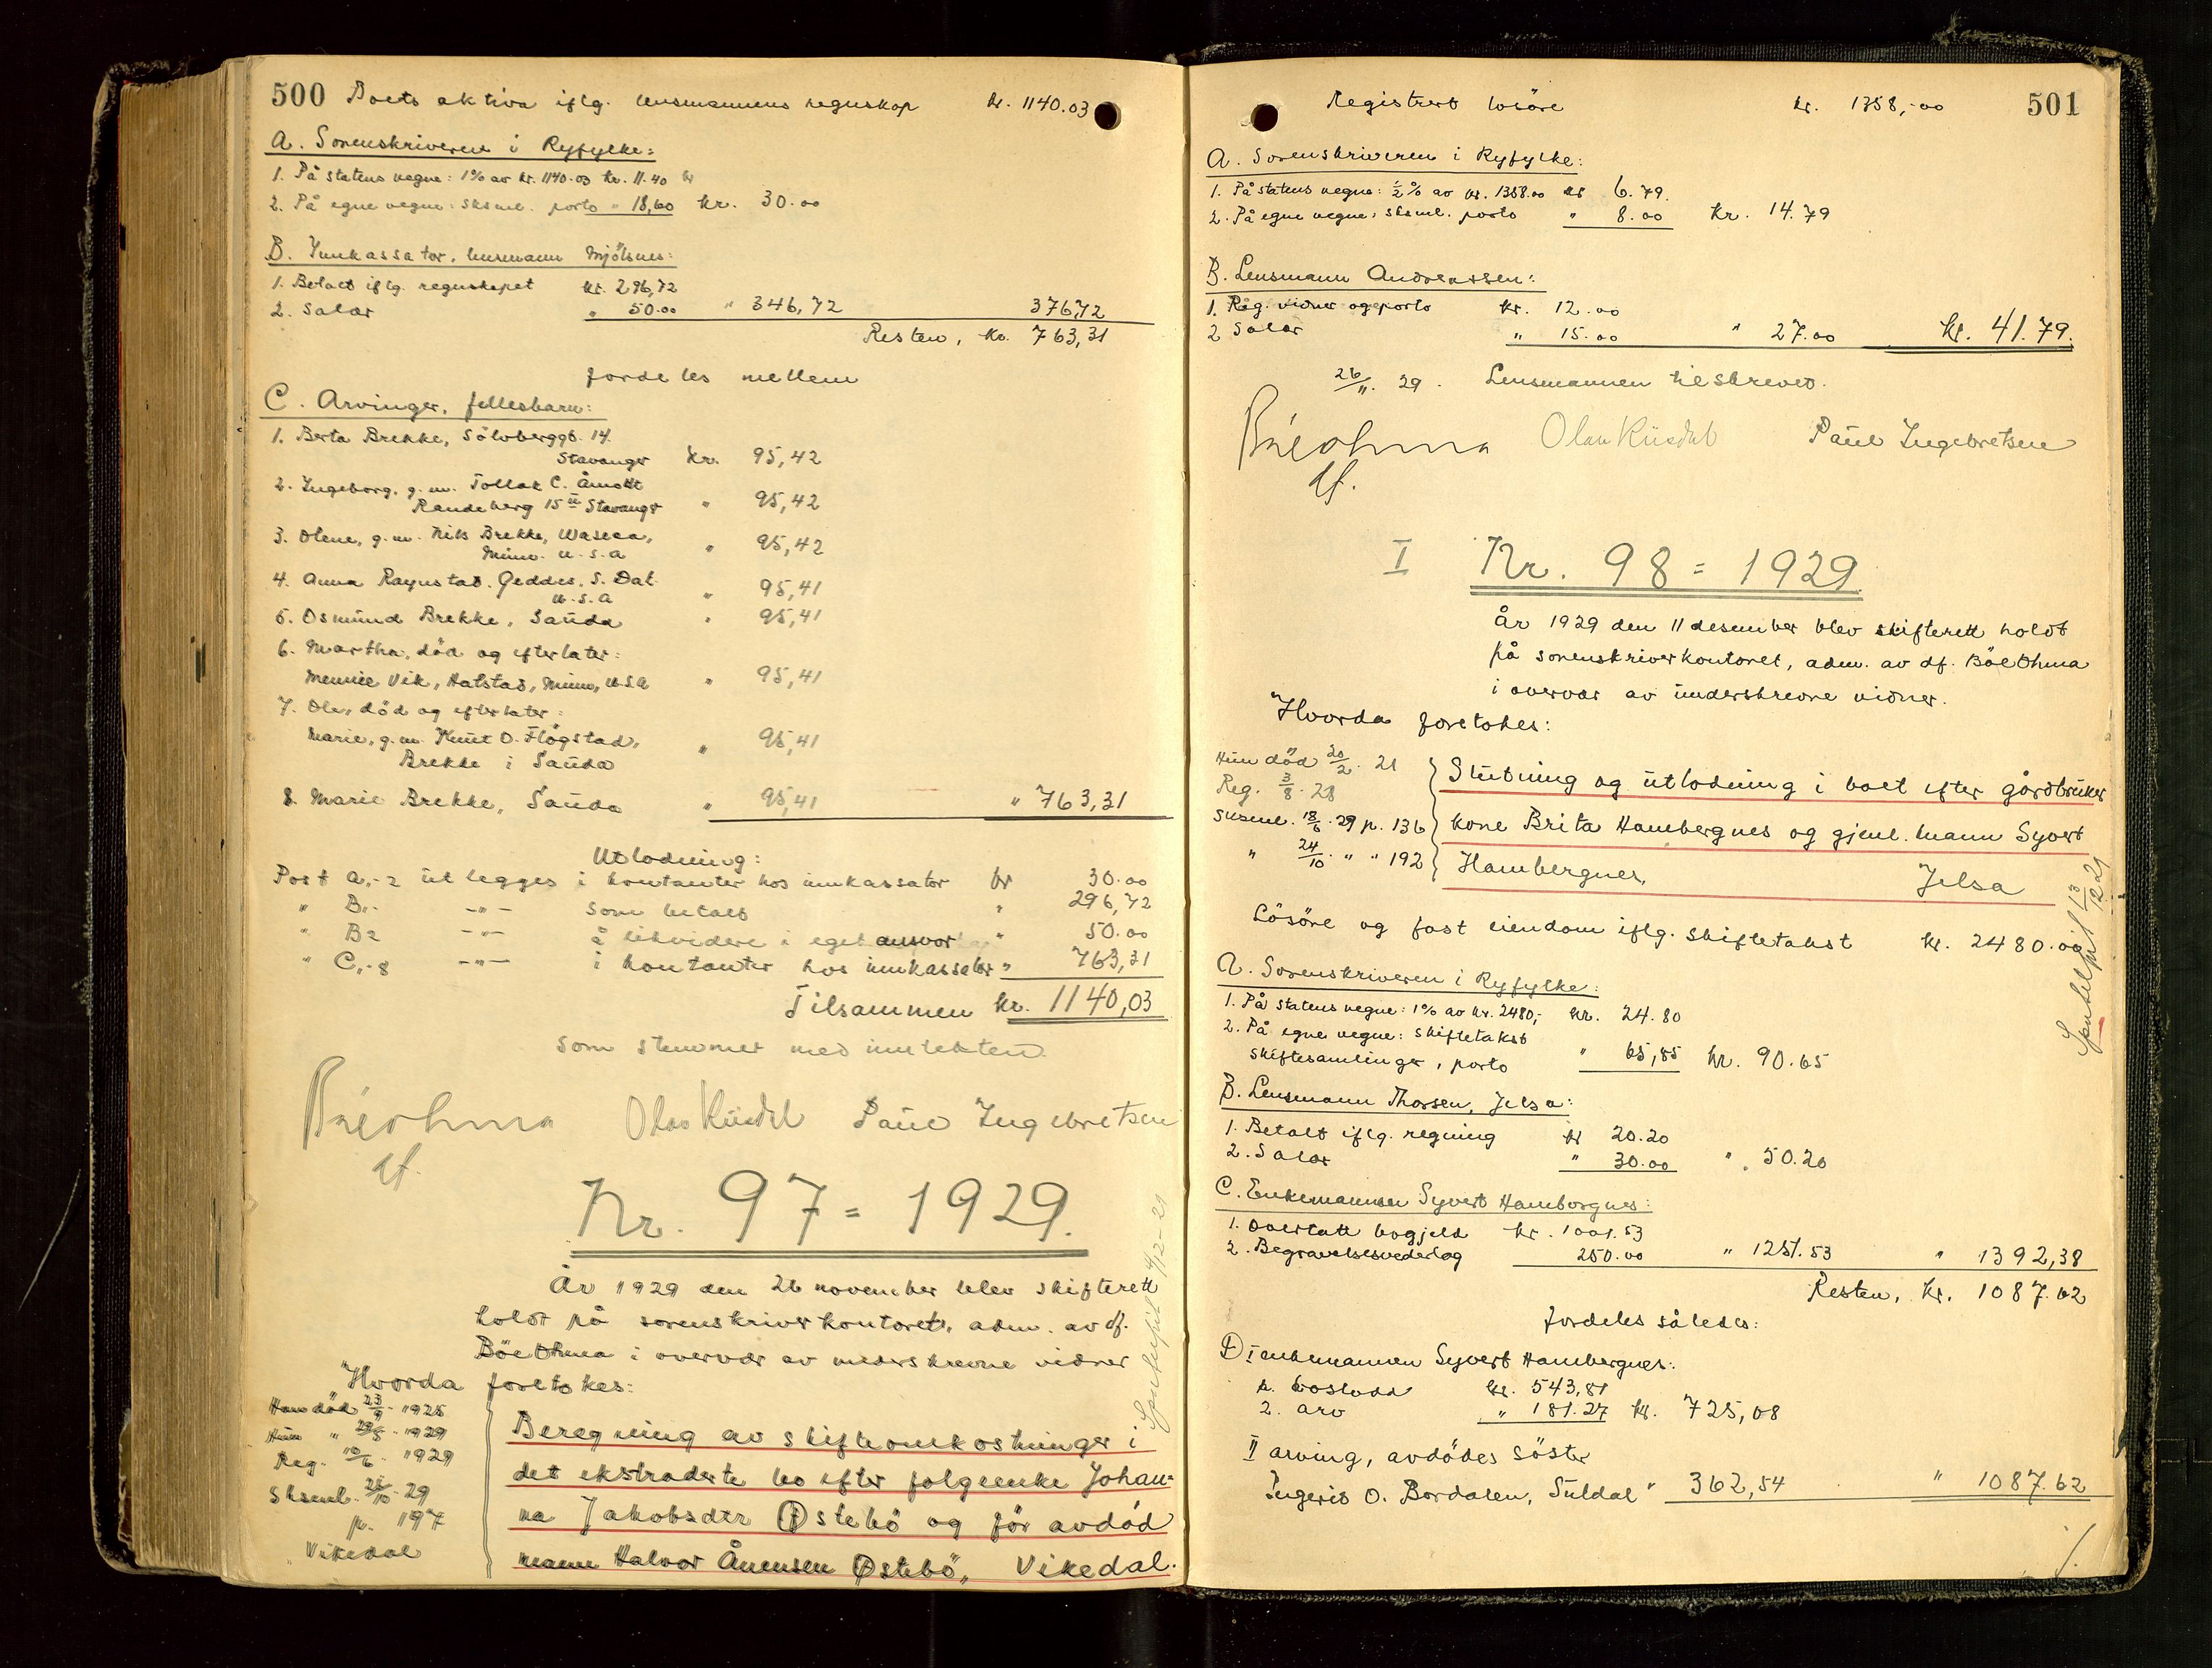 500 Boets aktiva iflg. lensmannens regnskap kr. 1140.03
A. Sorenskriveren i Ryfylke:
1. På statens vegne: 1% av kr. 1140.03 kr. 11.40
2. På egne vegne: sksml. porto " 18,60 kr. 30.00
B. Innkassator, lensmann Mjölsnes:
1. Betalt iflg. regnskapet kr. 296,72
2. Salær " 50.00 " 346,72 376,72
Resten, kr. 763,31
fordeles mellem
C. Arvinger, fellesbarn:
1. Berta Brekke, Sölvberggt. 14
Stavanger kr. 95,42
2. Ingeborg, g.m. Tollak C. Åmodt
Randeberg 15 II Stavanger " 95,42
3. Olene, g.m. Nils Brekke, Waseca,
Minn. U.S.A " 95,42
4. Anna Raynstad. Geddes, S. Dak.
U.S.A " 95,41
5. Osmund Brekke, Sauda " 95,41
6. Martha, död og efterlater:
Mennie Vik, Halstad, Minn, U.S.A " 95,41
7. Ole, död og efterlater:
Marie, g.m. Knut O. Flögstad,
Brekke i Sauda " 95,41
8. Marie Brekke, Sauda " 95,41 " 763,31
Utlodning:
Post A1-2 utlegges i kontanter hos innkassator kr 30.00
" B1 -"- som betalt " 296,72
" B2 -"- å likvidere i eget ansvar " 50.00
" C1-8 -"- i kontanter hos innkassator " 763,31
Tilsammen kr. 1140,03
som stemmer med inntekten.
Böethma Olav Kusdal Paul Ingebretsen
df.
Nr. 97 = 1929.
År 1929 den 26 november blev skifterett
holdt på sorenskriverkontoret, adm. av df.
Böethma i overvær av underskrevne vidner
Hvorda foretokes:
Han död 23/9 1925
Hun " 29/5 1929
Reg. 10/6 1929
Sksml. 26/10 29
p. 197
Vikedal
Beregning av skifteomkostninger i
det ekstraderte bo efter følgeenke Johan=
na Jakobsdtr Östebö og för avdöd
mann Halvor Åmensen Östebö, Vikedal.
4/12-29
Registrert lösöre kr. 1358,-00 501
A. Sorenskriveren i Ryfylke:
1. På statens vegne: 1/2 % av kr. 1358.00 kr 6.79.
2. På egne vegne: sksml. porto " 8.00 kr. 14.79
B. Lensmann Andreassen:
1. Reg. vidner og porto kr. 12.00
2 Salær " 15.00 " 27.00 kr. 41.79.
26/11. 29. Lensmannen tilskrevet.
Böethma Olav Kusdal Paul Ingebretsen
df.
I Nr. 98 = 1929.
År 1929 den 11 desember blev skifterett holdt
på sorenskriverkontoret, adm. av df. Böethma
i overvær av underskrevne vidner.
Hvorda foretokes:
Hun död 20/2. 21
Reg. 3/8. 28
Sksml. 18/6. 29 p. 136
" 24/10. " " 192
Slutning og utlodning i boet efter gårdbruker
kone Brita Hambergnes og gjenl. mann Syvert
Hambergnes, Jelsa
13/12 29
Lösöre og fast eiendom iflg. skiftetakst kr. 2480.00
A. Sorenskriveren i Ryfylke:
1. På statens vegne: 1% av kr. 2480,- kr. 24.80
2. På egne vegne: skiftetakst
skiftesamlinger, porto " 65,85 kr. 90.65
B. Lensmann Thorsen, Jelsa:
1. Betalt iflg. regning kr 20.20
2. Salær " 30.00 " 50.20
C. Enkemannen Syvert Hambergnes:
1. Overtatt bogjeld kr. 1001.53
2. Begravelsesvederlag 250.00 " 1251.53 " 1392,38
Resten, kr. 1087.62
fordeles således:
D I enkemannen Syvert Hambergnes:
1. boslodd kr. 543,81
2. arv " 181.27 kr. 725,08
II arving, avdödes söster
Ingeris O. Bordalen, Suldal " 362,54 " 1087.62
./.